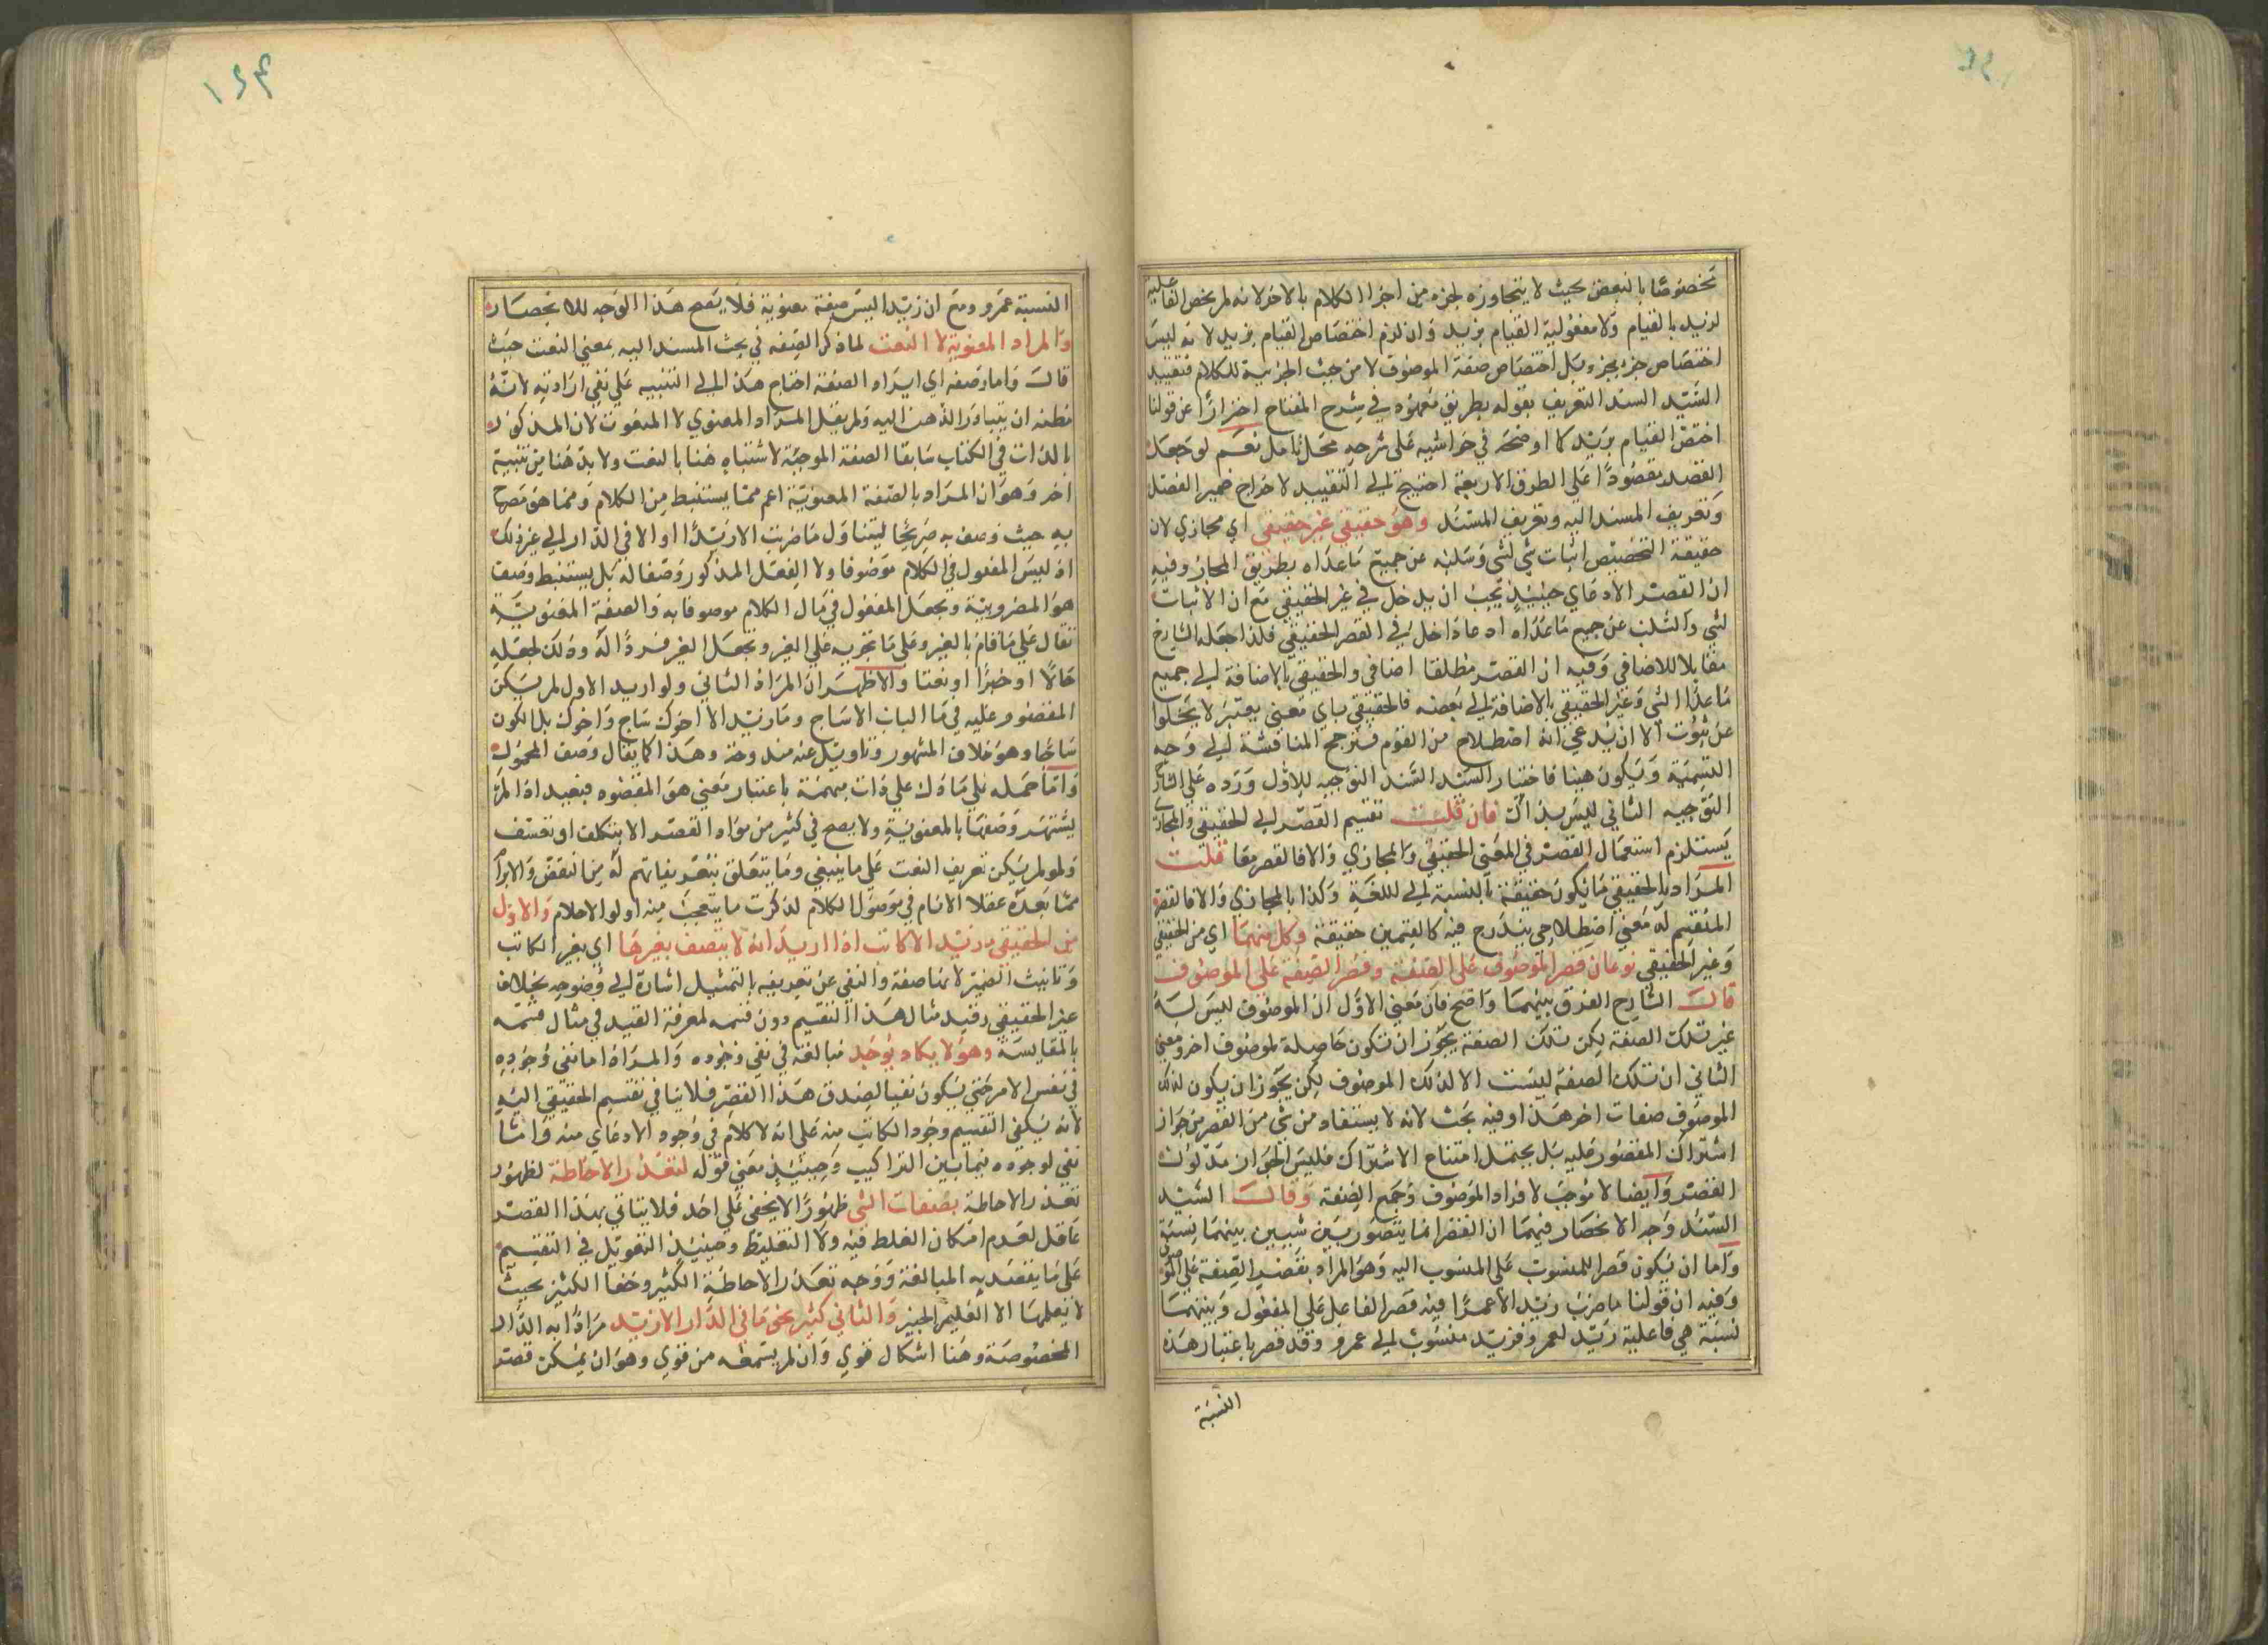 تخصوصا بالبعض بحيث لا يتجاوزه لجزء من اجزا الكلام بالاخر لانه لم يخص الفاعلية
لزيد بالقيام ولا مفعولية القيام بزيد وان لزم اختصاص القيام بزيد لانه ليس
اختصاص جزء بجزء بل اختصاص صفة الموصوف لا من حيث الجزئية للكلام فتقييد
السيد السند التعريف بقوله بطريق معهود في شرح المفتاح احترازا عن قولنا
اختص القيام بزيد كما اوضحه في حواشيه على شرحه محل تامل نعم لو جعل
القصد مقصودا على الطرق الاربعة احتيج الي التقييد لاخراج ضمير الفصل
وتعريف المسند اليه وتعريف المسند وهو حقيقي غير حقيقي اي مجازي لان
حقيقة التخصيص اثبات شي لشي وسلبه عن جميع ما عداه بطريق المجاز وفيه
ان القصر الادعاي حينيذ يجب ان يدخل في غير الحقيقي مع ان الاثبات
لشي والسلب عن جميع ما عداه ادعا داخل في القصر الحقيقي فلذا جعله الشارح
مقابلا للاضافي وفيه ان القصر مطلقا اضافي والحقيقي بالاضافة الي جميع
ما عدا الشي وغير الحقيقي بالاضافة الي بعضه فالحقيقي باي معني يعتبر لا يخلوا
عن ثبوت الا ان يدعي انه اصطلاح من القوم فترجح المناقشة الي وجه
التسمية ويكون هينا فاختار السيد السند التوجيه للاول ورده علي الشارح
التوجيه الثاني ليس بذاك فان قلت تقسيم القصر الي الحقيقي والمجازي
يستلزم استعمال القصر في المعني الحقيقي والمجازي والا فالقصر معا قلت
المراد بالحقيقي ما يكون حقيقة بالنسبة الي اللغة وكذا بالمجازي والا فالقصر
المنقسم له معني اصطلاحي يندرج فيه كالقسمين حقيقة وكل منهما اي من الحقيقي
وغير الحقيقي نوعان قصر الموصوف على الصفة وقصر الصفة على الموصوف
قال الشارح الفرق بينهما واضح فان معني الاول ان الموصوف ليس له
غير تلك الصفة لكن تلك الصفة يجوز ان تكون حاصلة لموصوف اخر ومعني
الثاني ان تلك الصفة ليست الا لذلك الموصوف لكن يجوز ان يكون لذلك
الموصوف صفات اخر هذا وفيه بحث لانه لا يستفاد من شي من القصر من جواز
اشتراك المقصور عليه بل يحتمل امتناع الاشتراك فليس الجواز مدلول
القصر وايضا لا موجب لافراد الموصوف وجمع الصفة وقال السيد
السند وجه الانحصار فيهما ان القصر انما يتصور بين شيين بينهما نسبة
واما ان يكون قصرا للمنسوب على المنسوب اليه وهو المراد بقصر الصفة على الموصوف
وفيه ان قولنا ما ضرب زيد الا عمرا فيه قصر الفاعل علي المفعول وبينهما
نسبة هي فاعلية زيد لعمر وفزيد منسوب الي عمرو وقد قصر باعتبار هذه
النسبة
١٤٣
النسبة عمرو ومع ان زيد اليس صفة معنوية فلا يصح هذا الوجه للانحصار
والمراد المعنوية لا النعت لما ذكر الصفة في بحث المسند اليه بمعني النعت حيث
قال واما وصفه اي ايراد الصفة احتاج هذا الي التنبيه علي نفي ارادته لانه
مظنه ان يتبادر الذهن اليه ولم يقل المراد المعنوي لا المنعوت لان المذكور
بالذات في الكتاب سابقا الصفة الموجبة لاشتباه هنا بالنعت ولا بد هنا من تنبيه
اخر وهو ان المراد بالصفة المعنوية اعم مما يستنبط من الكلام ومما هو مصرح
به حيث وصف به صريحا ليتناول ما ضربت الا زيدا او الا في الدار الي غير ذلك
اذ ليس المفعول في الكلام موصوفا ولا الفعل المذكور وصفا له بل يستنبط وصف
هو المضروبية ويجعل المفعول في مال الكلام موصوفا به والصفة المعنوية
تقال علي ما قام بالغير وعلي ما تجريه علي الغير وتجعل الغير فردا له وذلك لجعله
حالا او خبرا او نعتا والاظهر ان المراد الثاني ولو اريد الاول لم يكن
المقصور عليه في ما الباب الاساج وما زيد الا اخوك ساج واخوك بل الكون
ساجا وهو خلاف المشهور وتاويل عنه مندوحة وهذا كما يقال وصف المحمول
واما حمله علي ما دل علي ذات مبهمة باعتبار معني هو المقصود فبعيد اذا لم
يشتهر وصفها بالمعنوية ولا يصح في كثير من مواد القصر الا بتكلف او تعسف
ولو لم يكن تعريف النعت علي ما ينبغي وما يتعلق بتعريفاتهم له من النقض والابرام
مما بعده عقلا الانام في موصول الكلام لذكرت ما يتعجب منه اولو الاحلام والاول
من الحقيقي ما زيد الا كاتب اذا اريد انه لا يتصف بغيرها اي بغير الكاتب
وتانيث الضمير لانها صفة والنفي عن تعريفه بالتمثيل اشارة الي وضوحه بخلاف
غير الحقيقي وقيد مثال هذا التقسيم دون قسمه لمعرفة القيد في مثال قسمه
بالمقايسة وهو لا يكاد يوجد مبالغة في نفي وجوده والمراد اما نفي وجوده
في نفس الامر حتي يكون نفيا لصدق هذا القصر فلا ينافي تقسيم الحقيقي اليه
لانه يكفي القسيم وجود الكاتب منه علي انه لا كلام في وجود الادعاي منه وامّا
نفي لوجوده فيما بين التراكيب وحينيذ معني قوله لتعذر الاحاطة لظهور
تعذر الاحاطة بصفات الشي ظهورا لا يخفي علي احد فلا يتاتي بهذا القصر
عاقل لعدم امكان الغلط فيه ولا التغليظ وحينيذ التعويل في التقسيم
علي ما يقصد به المبالغة ووجه تعذر الاحاطة الكثير وخفا الكثير بحيث
لا يعلمها الا العليم الخبير والثاني كثير نحو ما في الدار الا زيد مرادا به الدار
المخصوصة وهنا اشكال قوي وان لم يستمعه من قوي وهو ان يمكن قصر